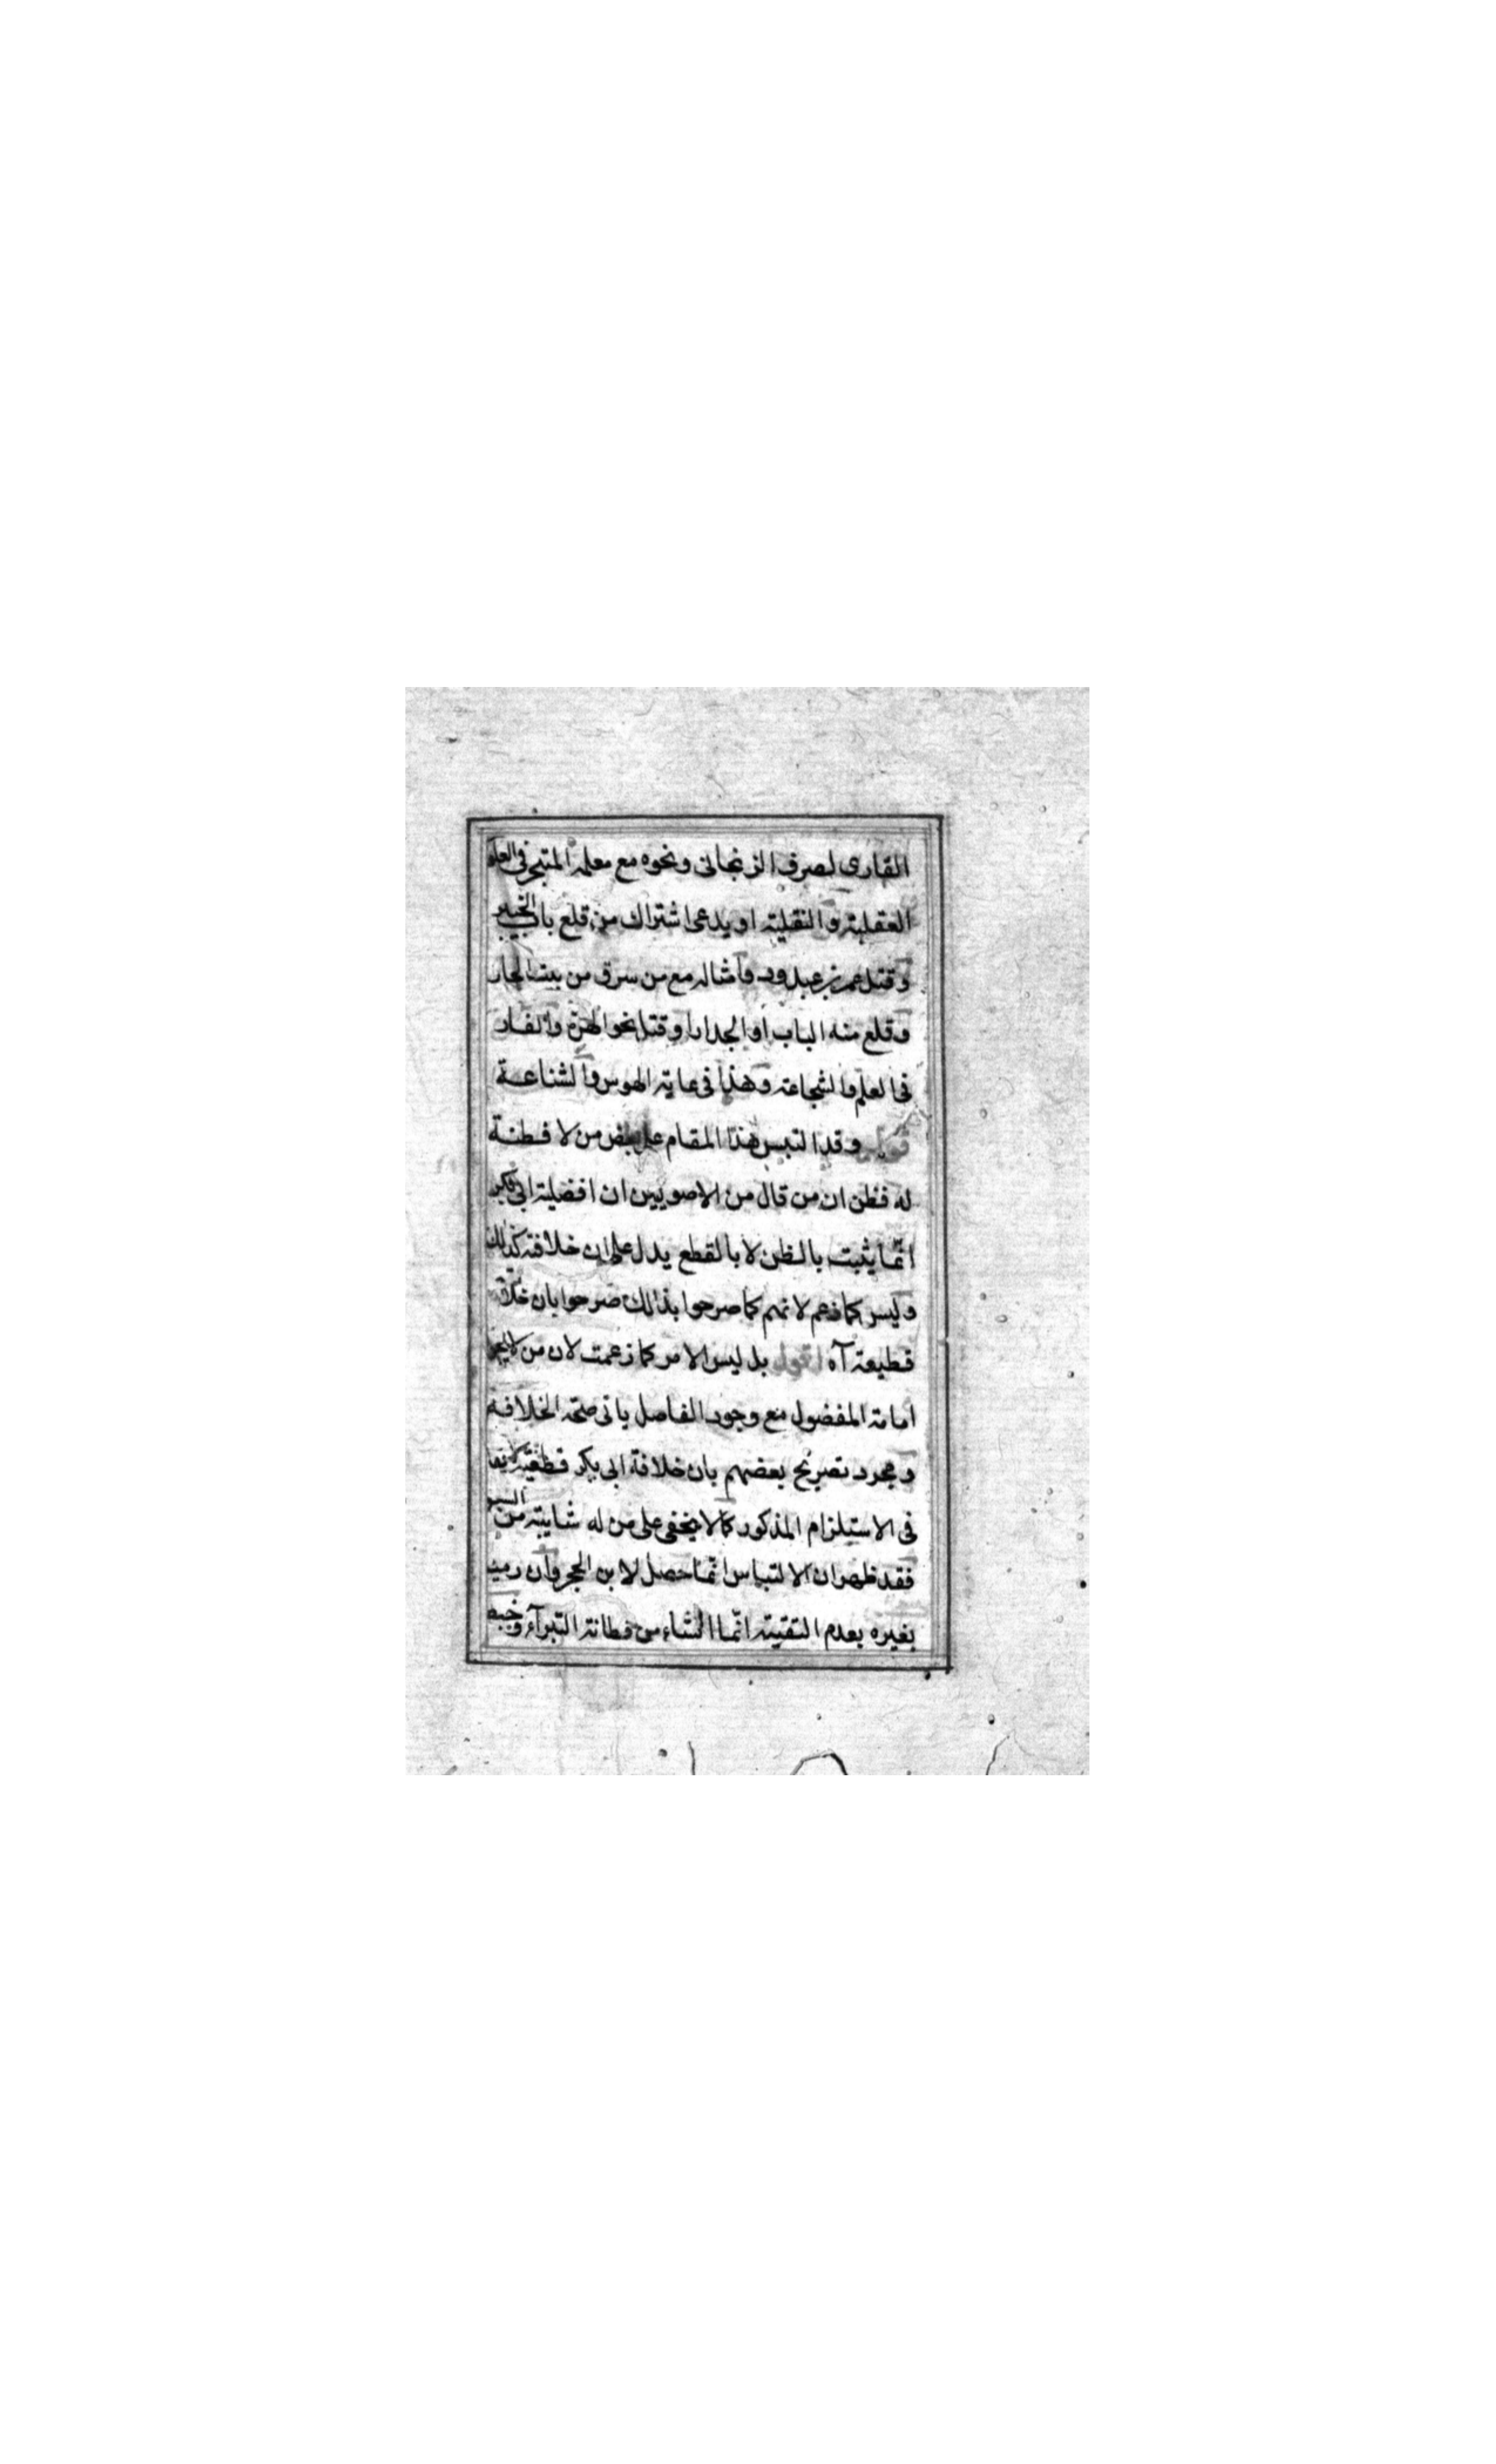 القارى لصرف الزنجانى ونحوه مع معلمه المتبحر فى العلوم
العقلية والنقلية او يدعى اشتراك من قلع باب الخيبر
وقتل عمر بن عبد ود وامثاله مع من سرق من بيت الجار
وقلع منه الباب او الجدار او قتل نحو الهرة والفار
فى العلم والشجاعة وهذا فى غاية الهوس والشناعة
وقد التبس هذا المقام على بعض من لا فطنة
له فظن ان من قال من الاصوليين ان افضلية ابى بكر
انّما يثبت بالظن لا بالقطع يدل على ان خلافته كذلك
وليس كما زعم لانهم كما صرحوا بذلك صرحوا بان خلافته
قطيعة آه اقول بل ليس الامر كما زعمت لان من لا يجوز
امامة المفضول مع وجود الفاضل يا تى صحّة الخلافة
ومجرد تصريح بعضهم بان خلافة ابى بكر قطعية لا
فى الاستلزام المذكور كما لا يخفى على من له شايبة من
فقد ظهر ان الالتباس انّما حصل لابن الحجر وان رميه
بغيره بعدم التقية انّما انشاء من فطانة التبرآء